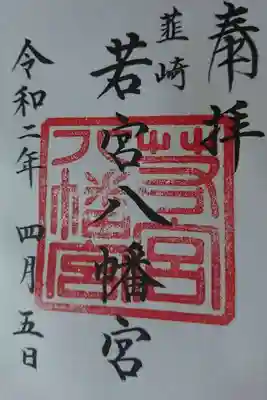 奉拝
韮崎
若宮八幡宮
令和二年 四月 五日
若宮
八幡宮